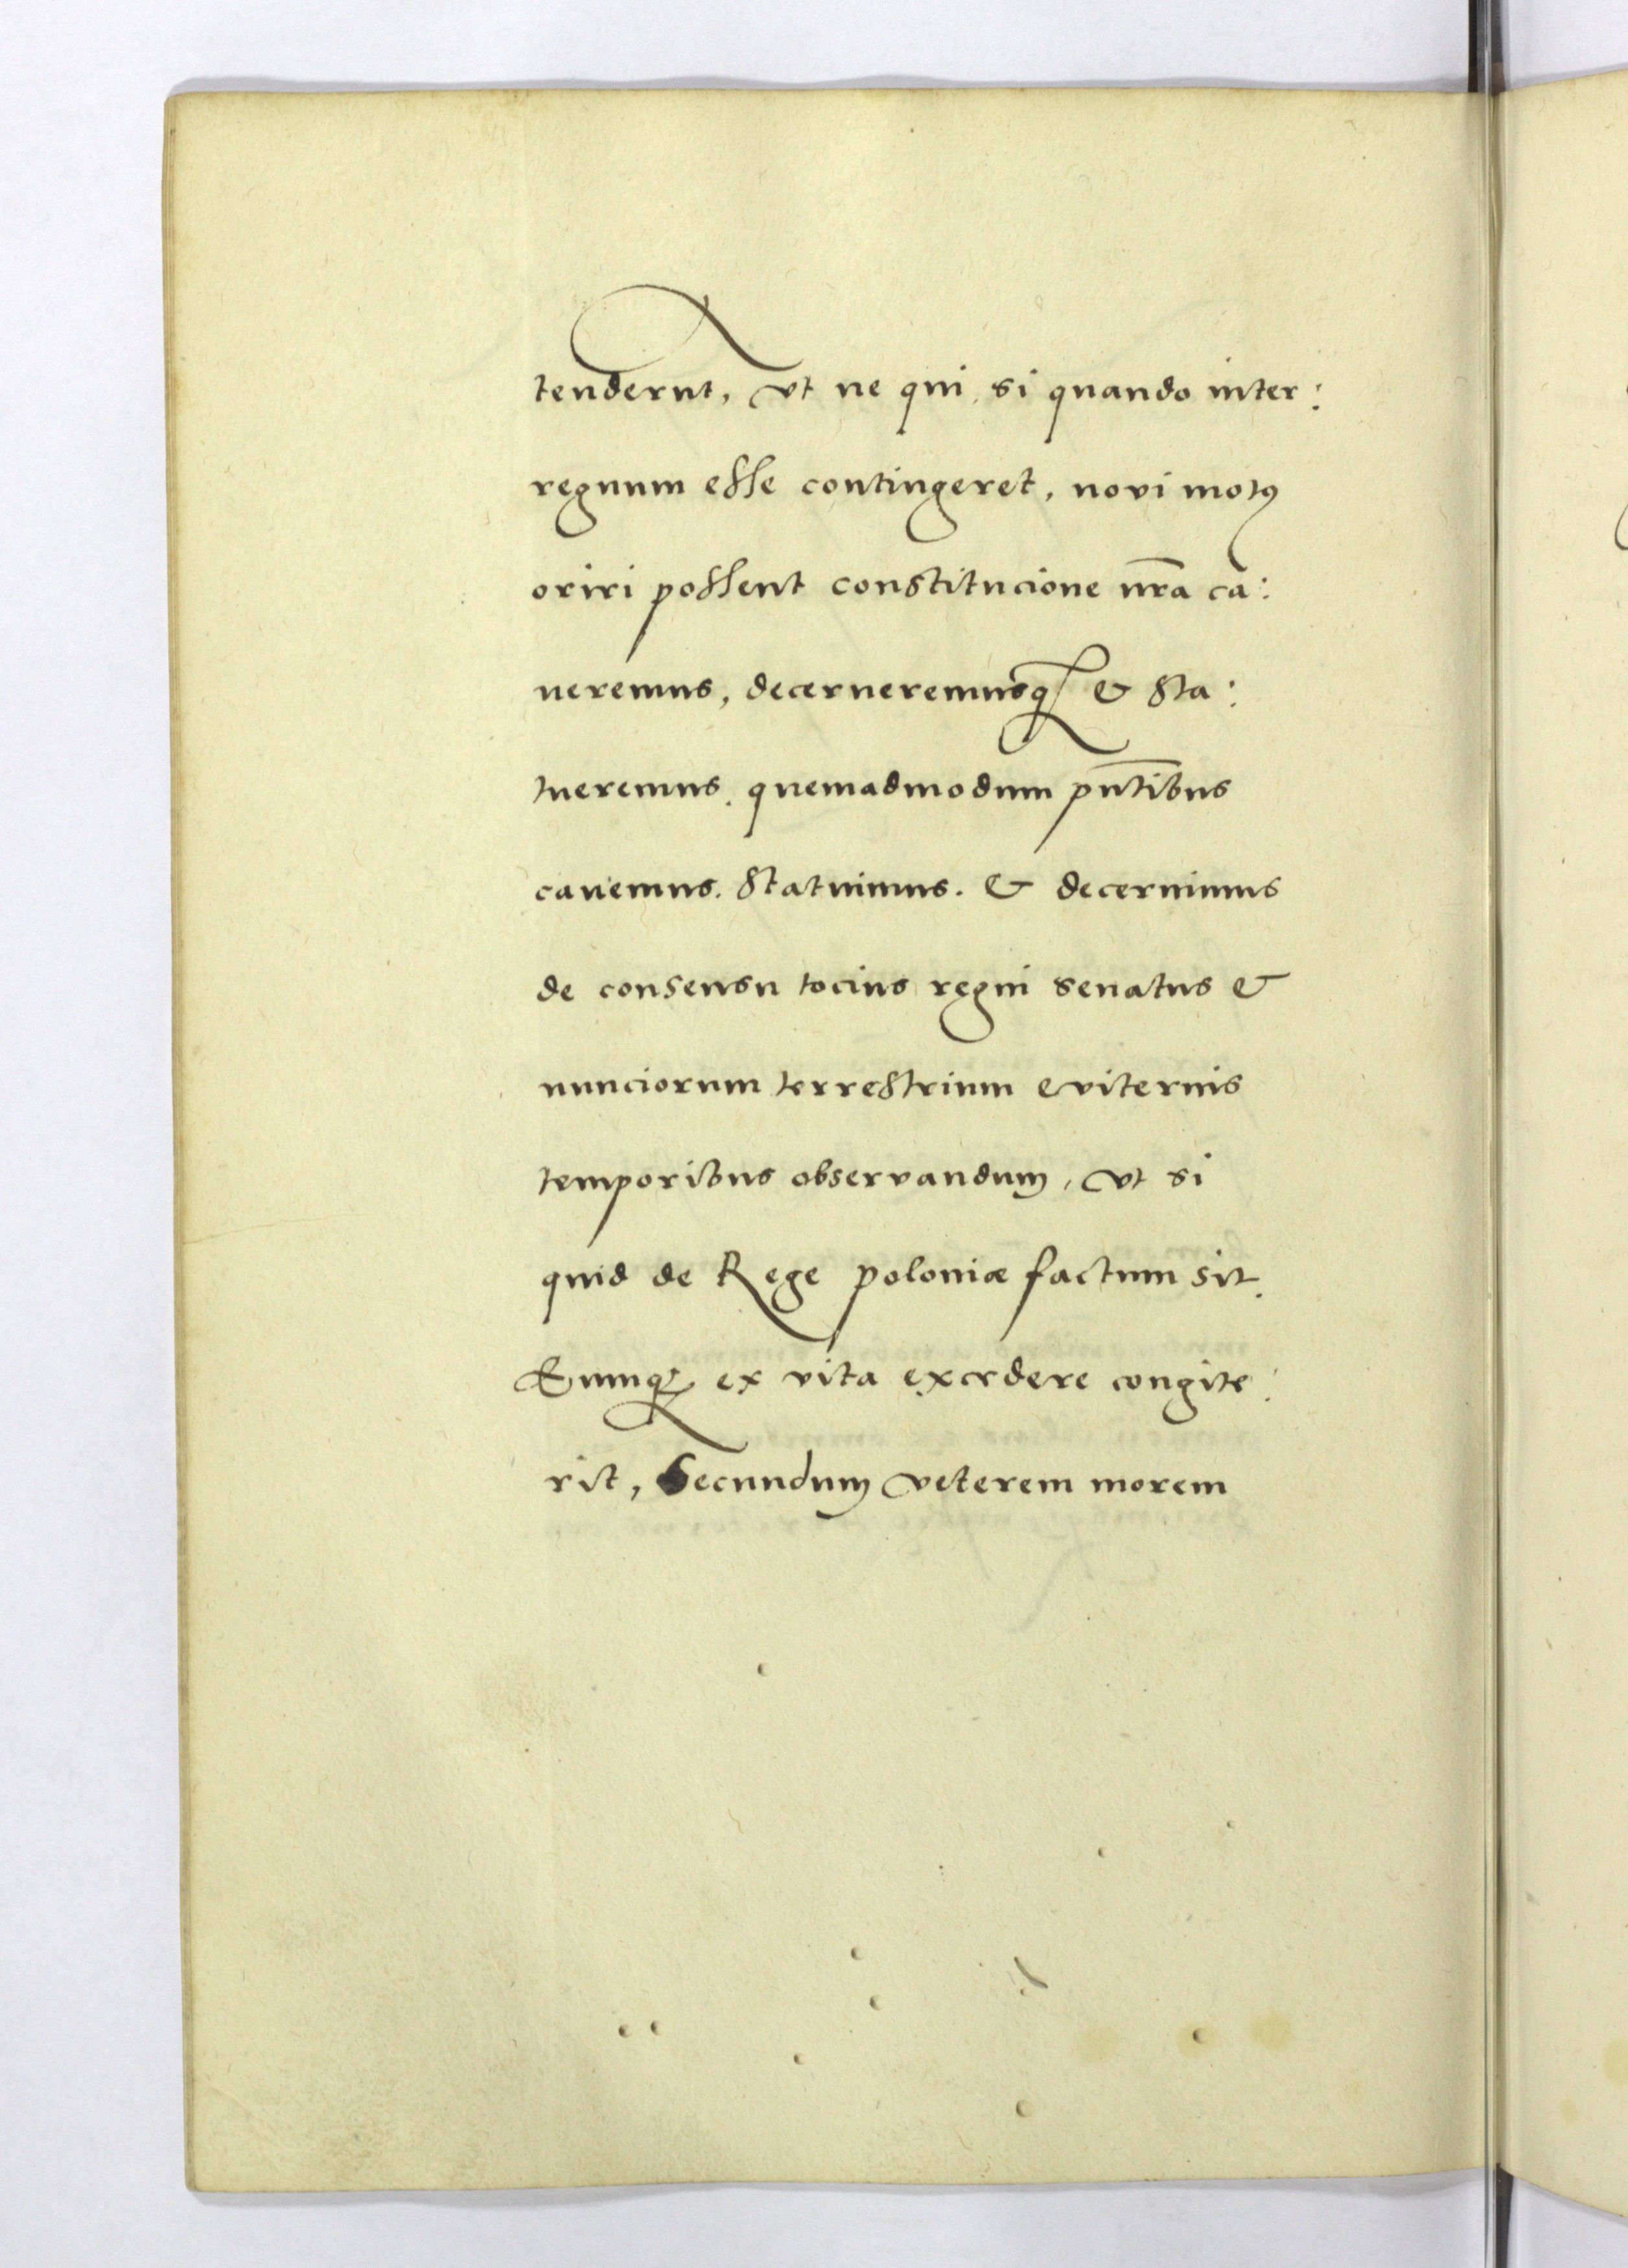 tenderent, vt ne qui, si quando inter:
regnum esse contingeret, novi motꝯ
oriri possent constitucione nr̃a ca:
ueremus, decerneremusqꝫ & sta:
tueremus. quemadmodum pn̄tibus
cauemus. statuimus. & decernimus
de consensu tocius regni senatus &
nunciorum terrestrium eviternis
temporibus observandum, vt si
quid de Rege poloniæ factum sit.
Eumqꝫ ex vita excedere congite:
rit, Secundum veterem morem